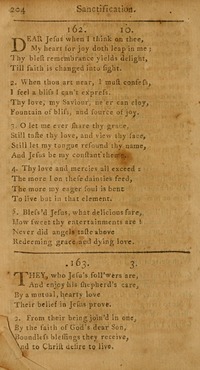 204 Sanctification.
162. 10.
DEAR Jeſus when I think on thee,
My heart for joy doth leap in me;
Thy bleſt remembrance yields delight,
Till faith is changed into ſight.
2. When thou art near, I muſt confeſs,
I feel a bliſs I can't expreſs.
Thy love, my Saviour, ne'er can cloy,
Fountain of bliſs, and ſource of joy.
3. O let me ever ſhare thy grace,
Still taſte thy love, and view thy face,
Still let my tongue reſound thy name,
And Jeſus be my conſtant theme.
4. Thy love and mercies all exceed:
The more I on theſe dainties feed,
The more my eager ſoul is bent
To live but in that element.
5. Bleſs'd Jeſus, what delicious fare,
How sweet thy entertainments are!
Never did angels taſte above
Redeeming grace and dying love.
163. 3.
THEY, who Jeſu's foll'wers are,
And enjoy his ſhepherd's care,
By a mutual, hearty love
Their belief in Jeſus prove.
2. From their being join'd in one,
By the faith of God's dear Son,
Boundleſs bleſſings they receive,
And to Chriſt deſire to live.